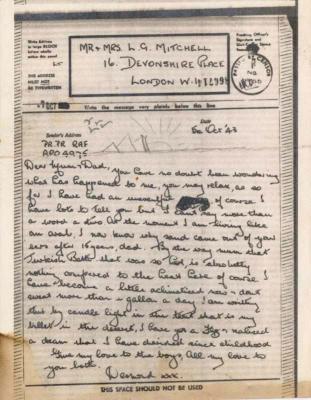 Write Address
in large BLOCK
letters wholly
within this panel
THE ADDRESS
MUST NOT
BE TYPEWRITTEN
MR & MRS. L. G. MITCHELL
16. DEVONSHIRE PLACE
LONDON W.1
OCT
Write the message very plainly below this line
Sender's Address
Date
RAF
APO 4975
5th Oct '43
Dear Mum & Dad, you have no doubt been wondering
what has happened to me, you may relax, as so
far I have had an uneventful of course I
have lots to tell you but I can't say more than
a word or two. At the moment I am living like
an Arab, I now know why sand came out of your
ears after 18 years, dad. By the way mum that
Turkish Bath that was so hot is absolutely
nothing compared to the heat here of course I
have become a little aclimatised now & don't
sweat more than a gallon a day. I am writing
this by candle light in the tent that is my
billet in the desert, I have got a & realised
a dream that I have desired since childhood
Give my love to the boys, All my love to
you both
Desmond xxx.
THIS SPACE SHOULD NOT BE USED